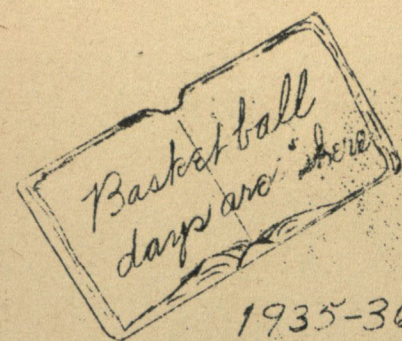 Basket ball
days are here
1935-36